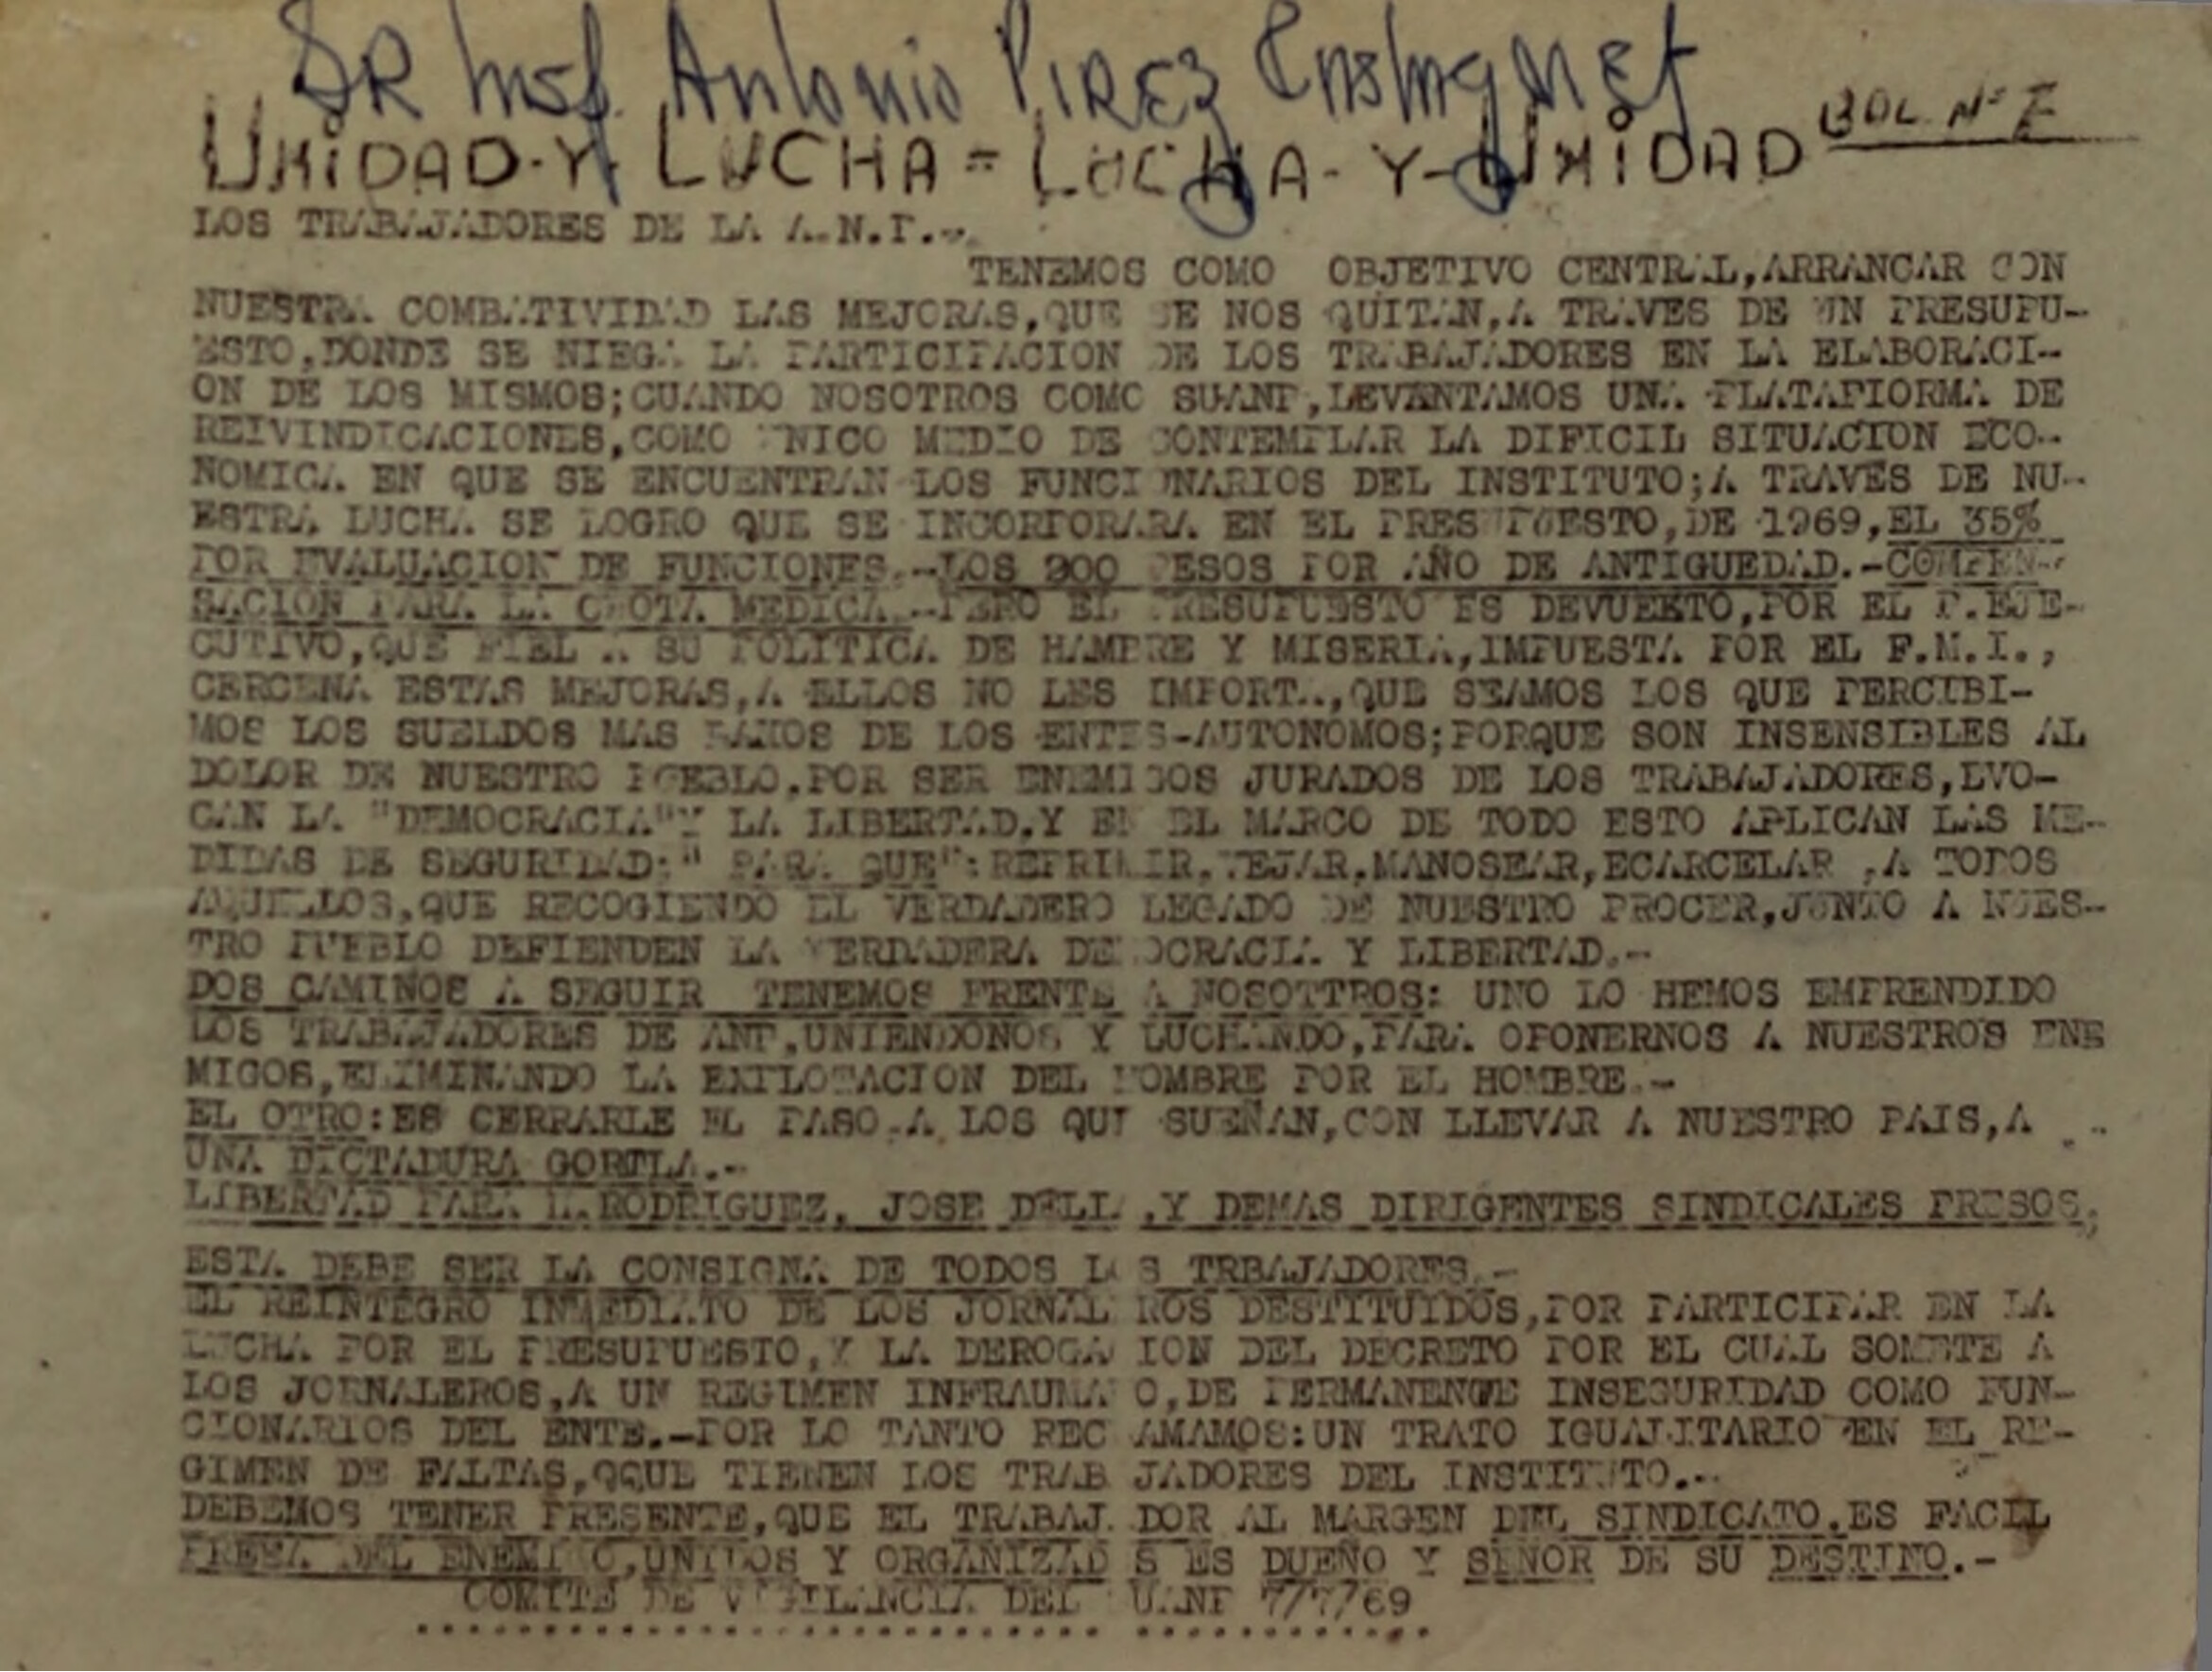 DR Insp. Antonio PIREZ
UNIDAD-Y-LUCHA=LUCHA-Y-UNIDAD BOL Nº
LOS TRABAJADORES DE LA A.N.P.-
TENEMOS COMO OBJETIVO CENTRAL,ARRANCAR CON
NUESTRA COMBATIVIDAD LAS MEJORAS,QUE SE NOS QUITAN,A TRAVES DE UN PRESUPU-
ESTO,DONDE SE NIEGA LA PARTICIPACION DE LOS TRABAJADORES EN LA ELABORACI-
ON DE LOS MISMOS;CUANDO NOSOTROS COMO SUANP,LEVANTAMOS UNA PLATAFIORMA DE
REIVINDICACIONES,COMO UNICO MEDIO DE CONTEMPLAR LA DIFICIL SITUACION ECO-
NOMICA EN QUE SE ENCUENTRAN LOS FUNCIONARIOS DEL INSTITUTO;A TRAVES DE NU-
ESTRA LUCHA SE LOGRO QUE SE INCORPORARA EN EL PRESUPUESTO,DE 1969,EL 35%
POR EVALUACION DE FUNCIONES.-LOS 200 PESOS POR AÑO DE ANTIGUEDAD.-COMPEN-
SACION PARA LA CUOTA MEDICA.-PERO EL PRESUPUESTO ES DEVUEKTO,POR EL P.EJE-
CUTIVO,QUE FIEL A SU POLITICA DE HAMBRE Y MISERIA,IMPUESTA POR EL F.M.I.,
CERCENA ESTAS MEJORAS,A ELLOS NO LES IMPORTA,QUE SEAMOS LOS QUE PERCIBI-
MOS LOS SUELDOS MAS BAXOS DE LOS ENTES-AUTONOMOS;PORQUE SON INSENSIBLES AL
DOLOR DE NUESTRO PUEBLO.POR SER ENEMIGOS JURADOS DE LOS TRABAJADORES,EVO-
CAN LA "DEMOCRACIA"Y LA LIBERTAD.Y EN EL MARCO DE TODO ESTO APLICAN LAS ME-
DIDAS DE SEGURIDAD:" PARA QUE":REPRIMIR,VEJAR,MANOSEAR,ECARCELAR ,A TODOS
AQUELLOS,QUE RECOGIENDO EL VERDADERO LEGADO DE NUESTRO PROCER,JUNTO A NUES-
TRO PUEBLO DEFIENDEN LA VERDADERA DEMOCRACIA Y LIBERTAD.-
DOS CAMINOS A SEGUIR TENEMOS FRENTE A NOSOTTROS: UNO LO HEMOS EMPRENDIDO
LOS TRABAJADORES DE ANP,UNIENDONOS Y LUCHANDO,PARA OPONERNOS A NUESTROS ENE
MIGOS,ELIMINANDO LA EXPLOTACION DEL HOMBRE POR EL HOMBRE.-
EL OTRO:ES CERRARLE EL PASO,A LOS QUE SUEÑAN,CON LLEVAR A NUESTRO PAIS,A
UNA DICTADURA GORILA.-
LIBERTAD PARA RODRIGUEZ, JOSE DELIA ,Y DEMAS DIRIGENTES SINDICALES PRESOS,
ESTA DEBE SER LA CONSIGNA DE TODOS LOS TRBAJADORES.-
EL REINTEGRO INMEDIATO DE LOS JORNALEROS DESTITUIDOS,POR PARTICIPAR EN LA
LUCHA POR EL PRESUPUESTO,Y LA DEROGACION DEL DECRETO POR EL CUAL SOMETE A
LOS JORNALEROS,A UN REGIMEN INFRAUMANO,DE PERMANENTE INSEGURIDAD COMO FUN-
CIONARIOS DEL ENTE.-POR LO TANTO RECLAMAMOS:UN TRATO IGUALITARIO EN EL RE-
GIMEN DE FALTAS,QQUE TIENEN LOS TRABAJADORES DEL INSTITUTO.-
DEBEMOS TENER PRESENTE,QUE EL TRABAJADOR AL MARGEN DEL SINDICATO.ES FACIL
PRESA DEL ENEMIGO,UNIDOS Y ORGANIZADOS ES DUEÑO Y SEÑOR DE SU DESTINO.-
COMITE DE VIGILANCIA DEL SUANP 7/7/69